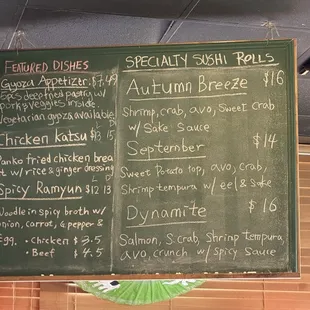 FEATURED DISHES
Gyoza Appetizer $7.49
6pcs deepfried pastry w/
pork & veggies inside
vegetarian gyoza available
Chicken Katsu $13.15
Panko fried chicken brea
t w/ rice & ginger dressing
Spicy Ramyun $12.13
Noodle in spicy broth w/
onion, carrot, g.pepper &
egg. • Chicken $3.5
• Beef $4.5
SPECIALTY SUSHI ROLLS
Autumn Breeze $16
Shrimp, crab, avo, sweet crab
w/ Sake Sauce
September $14
Sweet Potato top, avo, crab,
Shrimp tempura w/ eel & sake
Dynamite $16
Salmon, S.crab, Shrimp tempura,
avo, crunch w/ Spicy Sauce